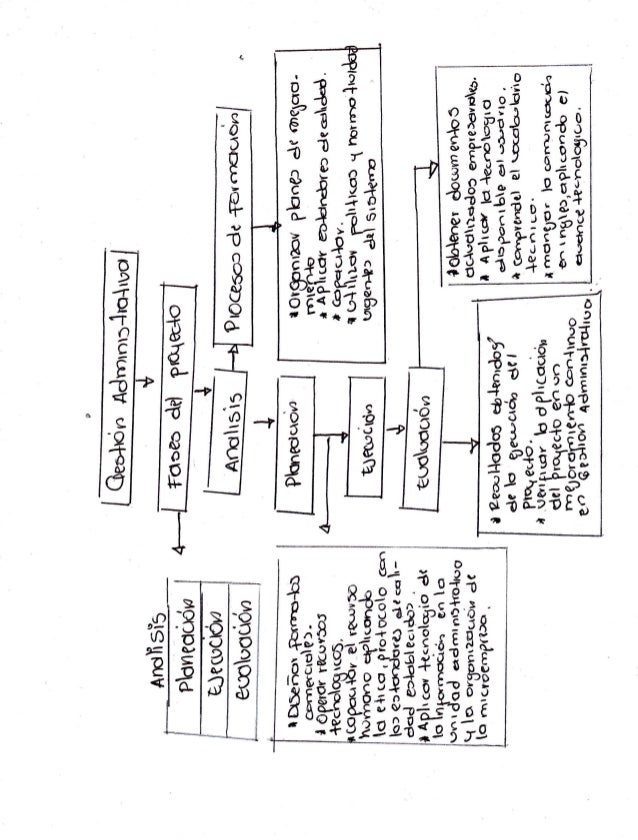 Gestión Administrativa
Fases del proyecto
Analisis
Planeación
Ejecución
evaluación
Analisis
Procesos de Formación
*Organizar planes de mejora-
miento
*Aplicar estandares de calidad.
*Capacitar.
*utilizar políticas y normatividad
vigentes del sistema
Planeación
*Diseñar formatos
comerciales.
*Operar recursos
tecnologicos.
*Capacitar el recurso
humano aplicando
la etica, protocolo con
los estandares de cali-
dad establecidos.
*Aplicar tecnologia de
la Información en la
unidad administrativa
y la organización de
la microempresa.
Ejecución
evaluación
*Obtener documentos
actualizados empresariales.
*Aplicar la tecnologia
disponible al usuario.
*comprendel el vocabulario
tecnico.
*manejar la comunicación
en ingles, aplicando el
avance tecnologico.
*Resultados obtenidos
de la ejecución del
Proyecto.
*Verificar la aplicación
del proyecto en un
mejoramiento continuo
en Gestion Administrativa